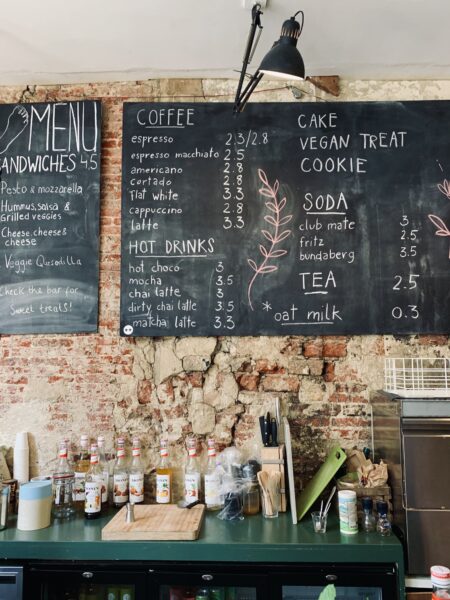 MENU
SANDWICHES 4,5
Pesto & mozzarella
Hummus, salsa &
Grilled veggies
Cheese, cheese &
cheese
Veggie Quesadilla
Check the bar for
Sweet treats!
COFFEE
espresso 2.3/2.8
espresso macchiato 2.5
americano 2.8
cortado 2.8
flat white 3.3
cappuccino 2.8
latte 3.3
HOT DRINKS
hot choco 3
mocha 3.5
chai latte 3
dirty chai latte 3.5
matcha latte 3.3
CAKE
VEGAN TREAT
COOKIE
SODA
club mate 3
fritz 2.5
bundaberg 3.5
TEA 2.5
* oat milk 0.3